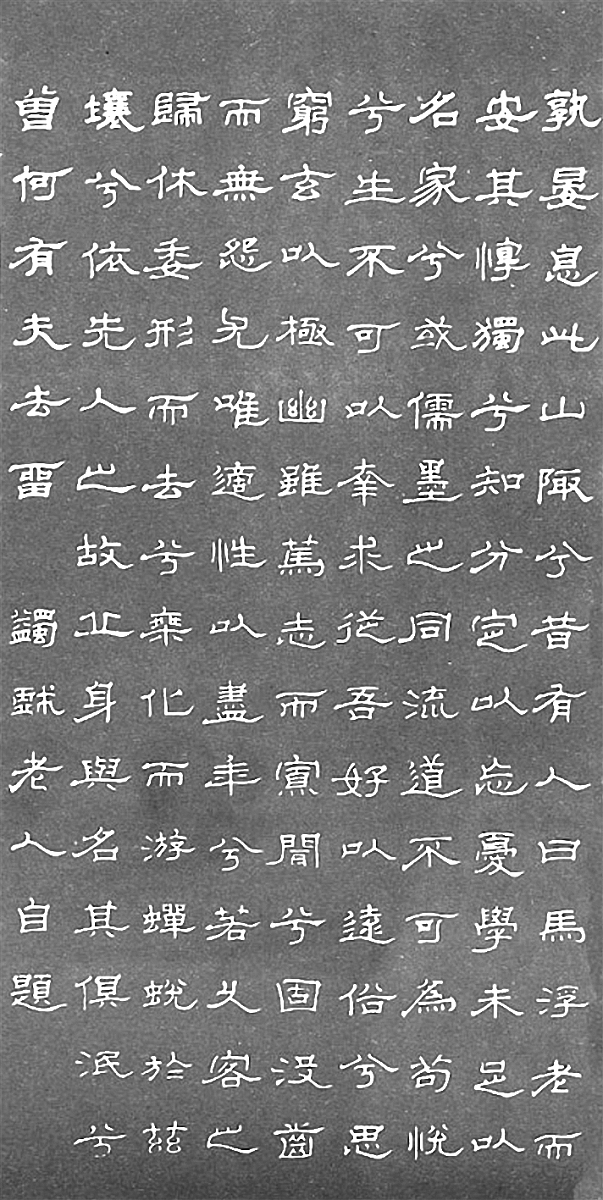 孰晏息此山陬兮昔有人曰馬浮老而
安其惸獨兮知分定以忘憂學未足以
名家兮或儒墨之同流道不可為苟悅
兮生不可以幸求從吾好以遠俗兮思
窮玄以極幽雖篤志而寡聞兮固没齒
而無怨尤唯適性以盡年兮若久客之
歸休委形而去兮乘化而游蟬蛻於茲
壤兮依先人之故丘身與名其俱泯兮
曾何有夫去留 蠲戲老人自題